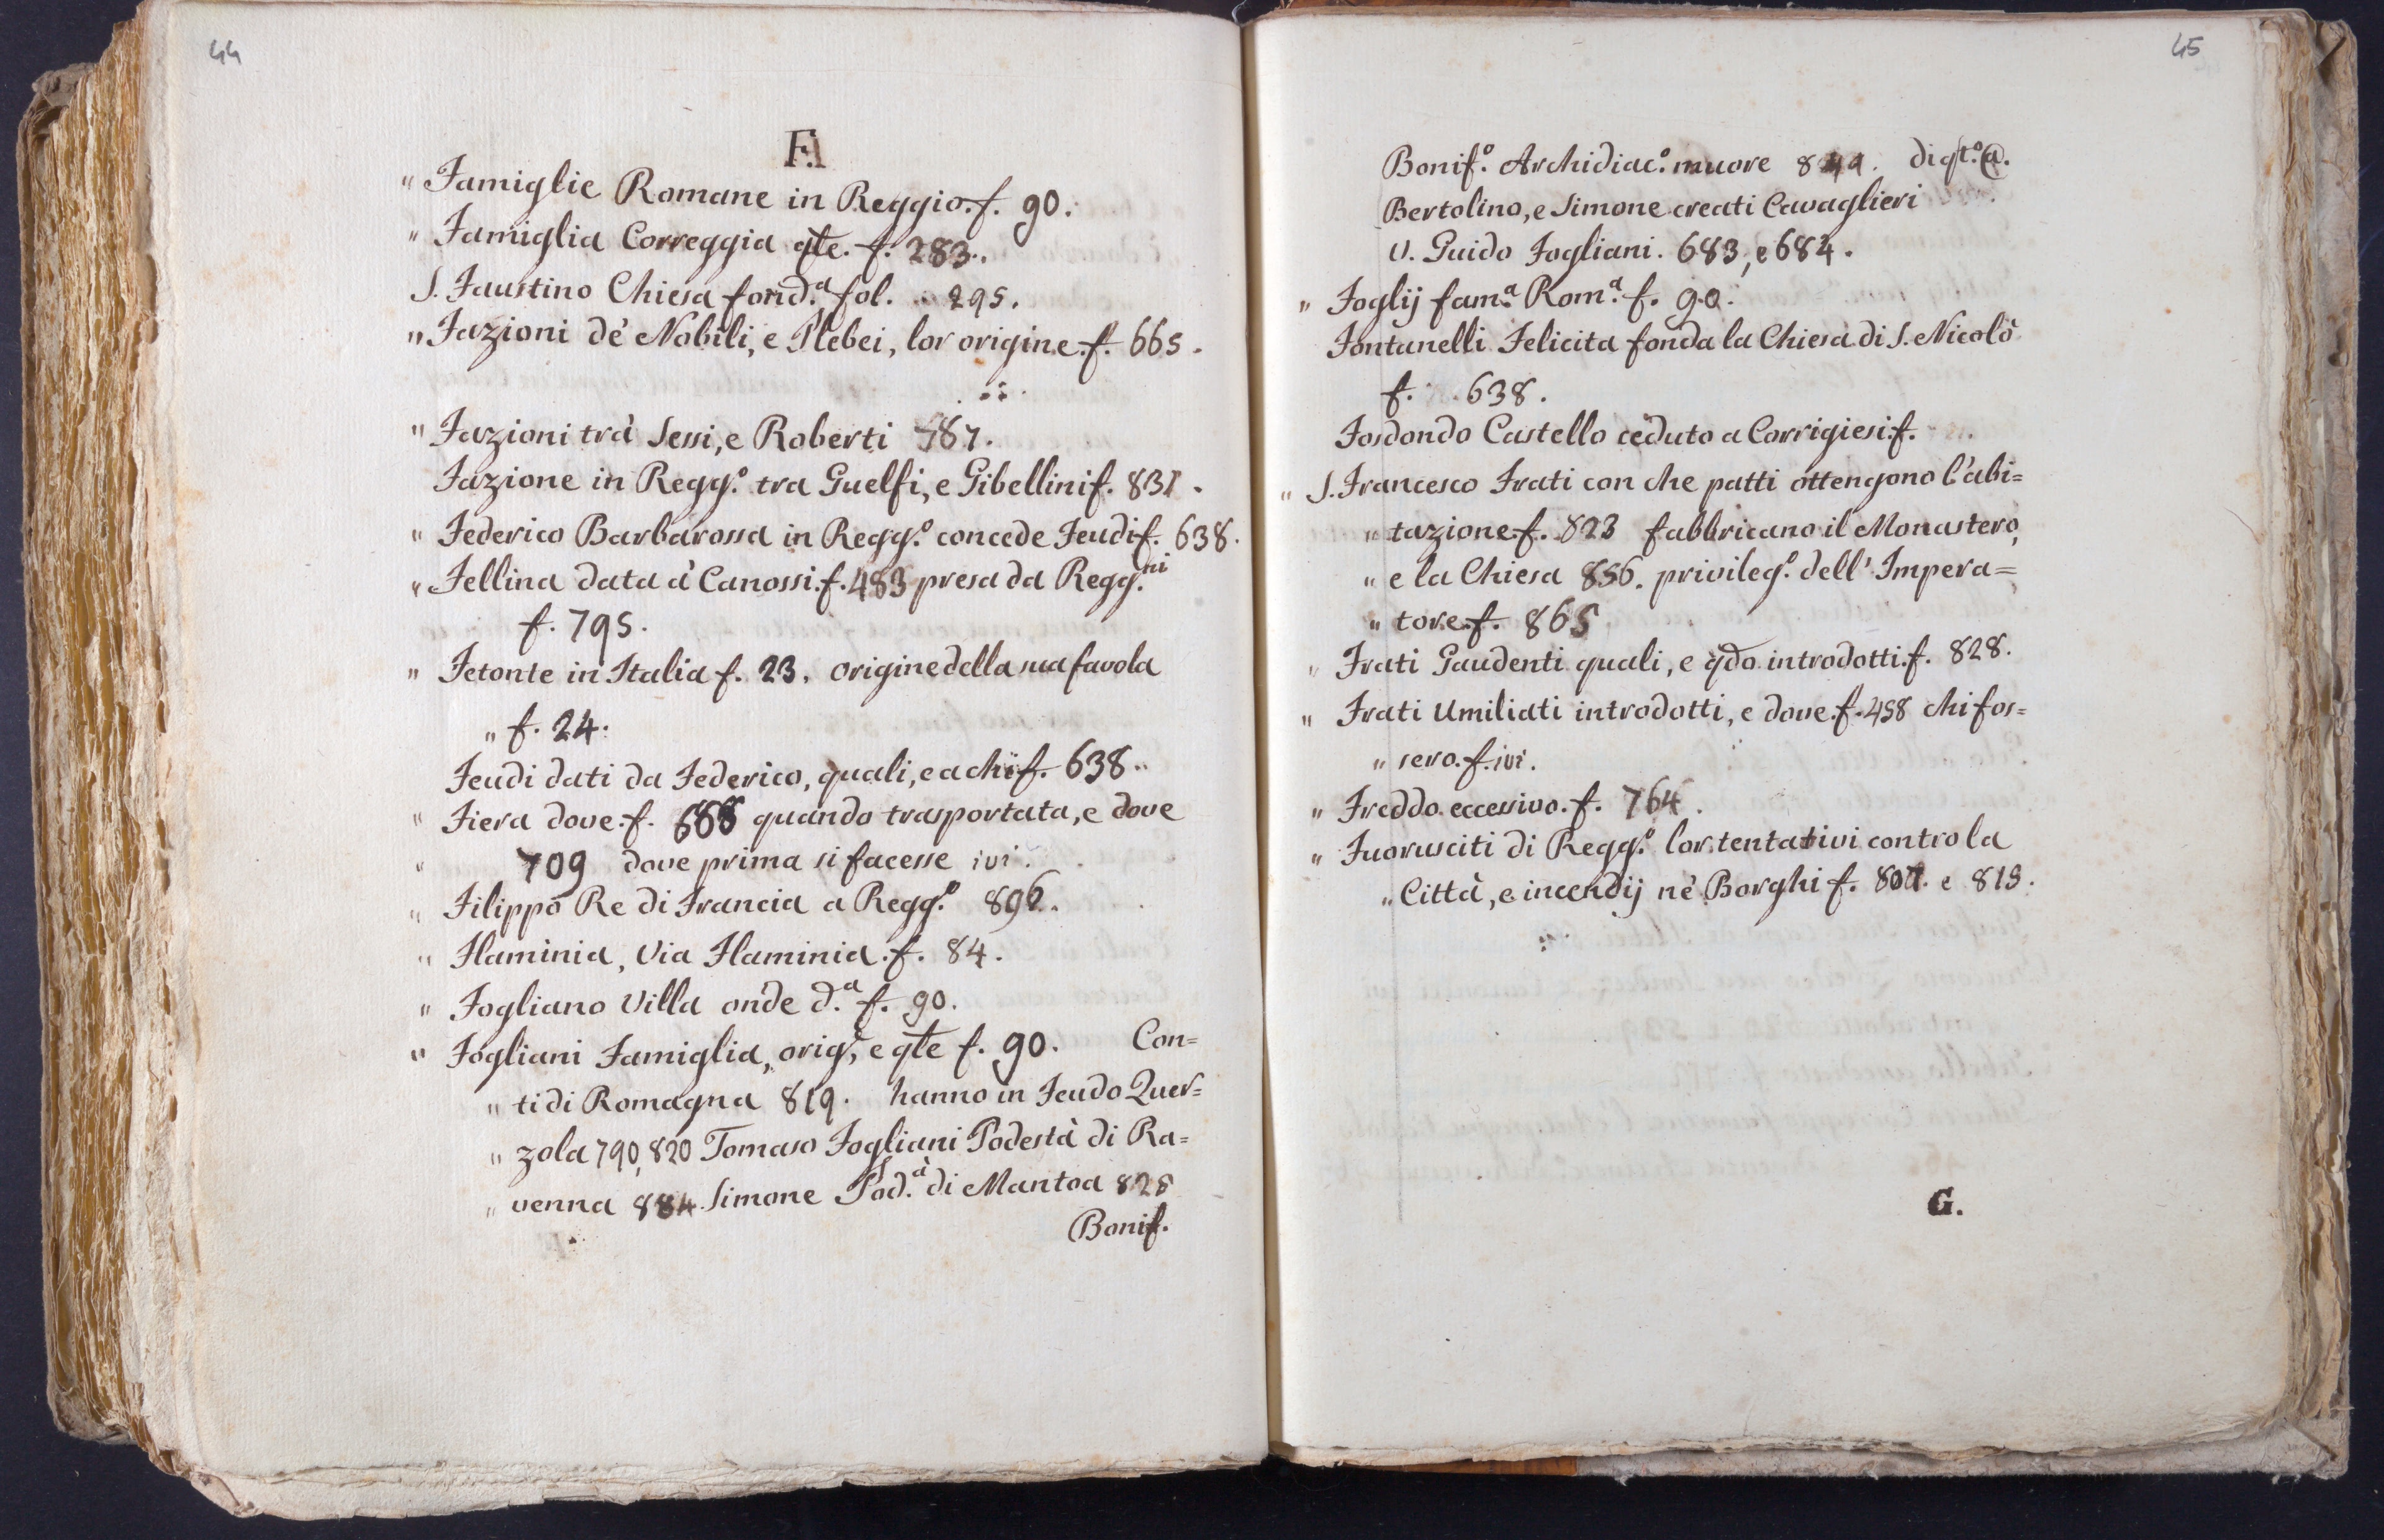 44
F.
" Famiglie Romane in Reggio. f. 90.
" Famiglia Correggia qte. f. 283.
S. Faustino Chiesa fond.ª fol. 295.
" Fazioni dè Nobili, e Plebei, lor origine. f. 665.
" Fazioni trà Sessi, e Roberti 787.
Fazione in Regg.º tra Guelfi, e Gibellini f. 831.
" Federico Barbarossa in Regg.º concede Feudi f. 638.
" Fellina data à Canossi. f. 483 presa da Regg.ni
f. 795.
" Fetonte in Italia f. 23. origine della sua favola
" f. 24.
Feudi dati da Federico, quali, e a chi f. 638.
" Fiera dove. f. quando trasportata, e dove
" 709 dove prima si facesse ivi.
" Filippo Re di Francia a Regg.º 896.
" Flaminia, Via Flaminia. f. 84.
" Fogliano Villa onde d.ª f. 90.
" Fogliani Famiglia, orig.e, e qte f. 90. Con=
" ti di Romagna 819. hanno in Feudo Quer=
" zola 790, 820 Tomaso Fogliani Podestà di Ra=
" venna 884. Simone Pod.à di Mantoa 828
Bonif.
45
Bonif.º Archidiac.º muore
Bertolino, e Simone creati Cavaglieri
V. Guido Fogliani. 683, e 684.
" Foglij fam.ª Rom.ª f. 90.
Fontanelli Felicita fonda la Chiesa di S. Nicolò
f. 638.
Fosdondo Castello ceduto a Corrigiesi. f.
" S. Francesco Frati con che patti ottengono l'abi=
" tazione. f. 823 fabbricano il Monastero,
" e la Chiesa 856. privileg.º dell' Impera=
" tore. f. 865
" Frati Gaudenti quali, e qdo introdotti. f. 828.
" Frati Umiliati introdotti, e dove. f. 458 chi fos=
" sero. f. ivi.
" Freddo eccessivo. f. 764.
" Fuorusciti di Regg.º lor tentativi contro la
" Città, e incendij nè Borghi f. 807. e 819.
G.